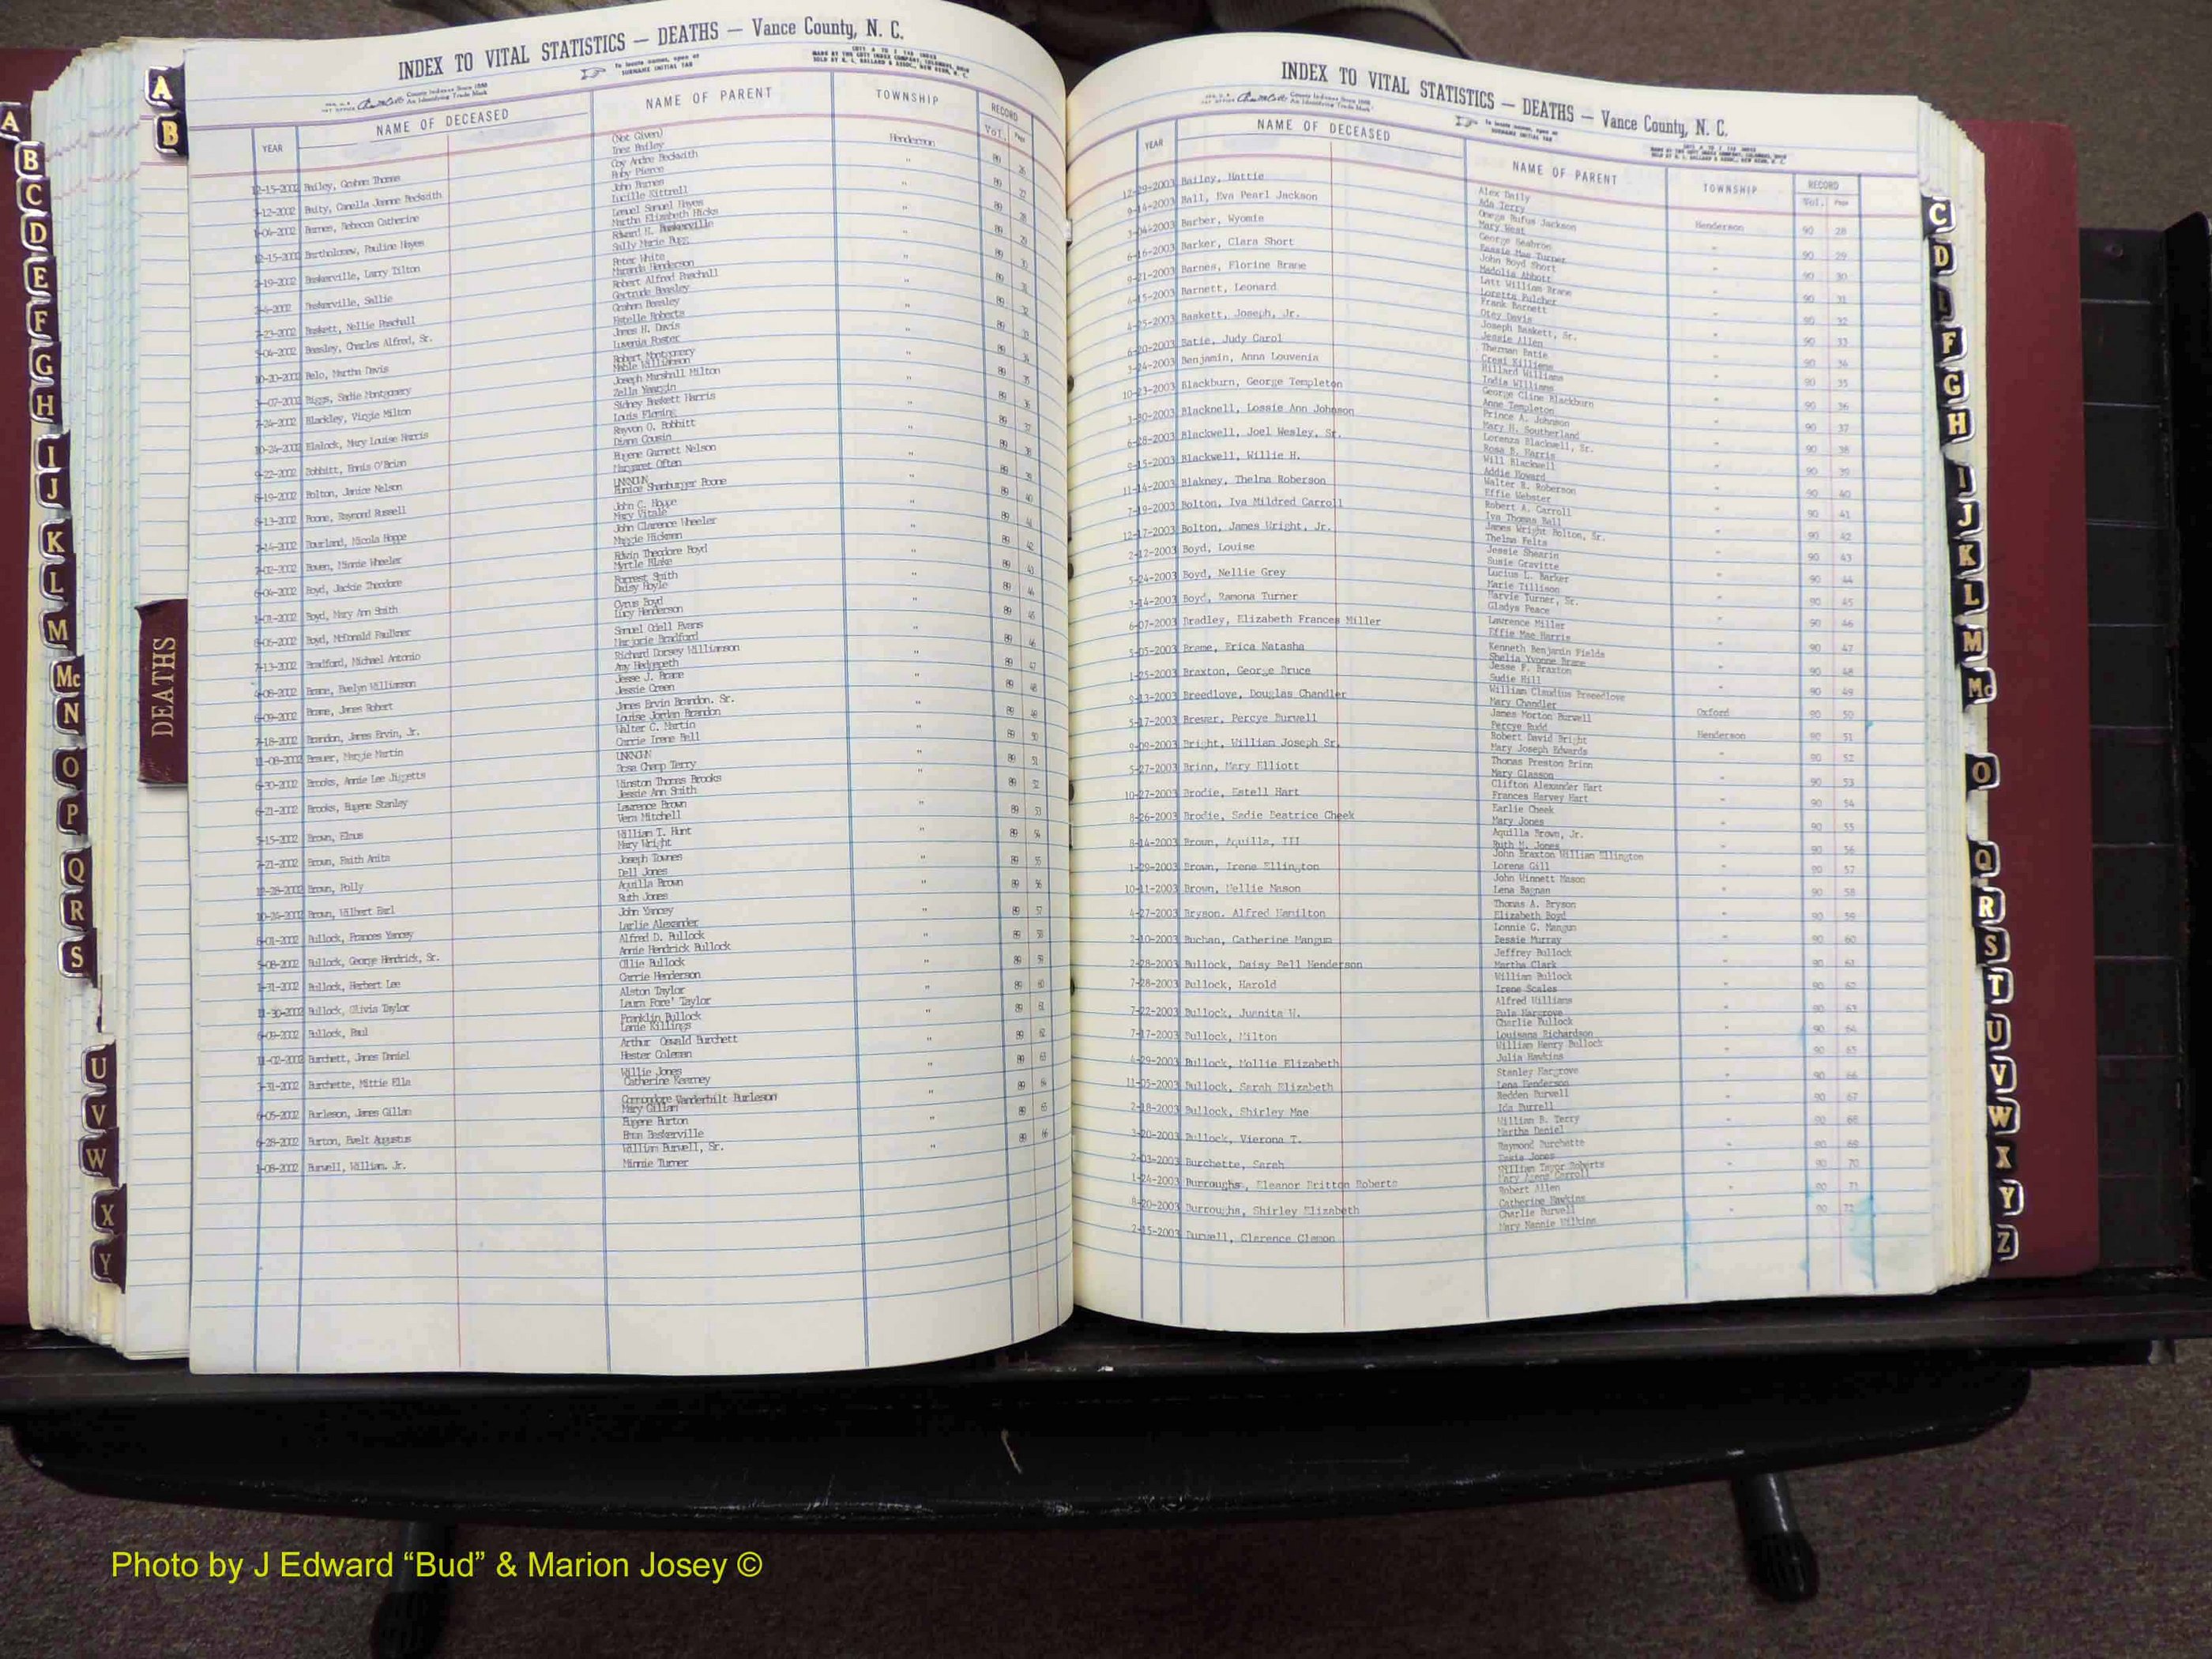 INDEX TO VITAL STATISTICS — DEATHS — Vance County, N. C.
To locate names, open at
SURNAME INITIAL TAB
County Indexes Since 1888
An Identifying Trade Mark
YEAR NAME OF DECEASED NAME OF PARENT TOWNSHIP RECORD
Vol. Page
(Not Given)
12-15-2002 Bailey, Graham Thomas Inez Bailey Henderson 89 26
Coy Andre Beckwith
3-12-2002 Baity, Canella Jeanne Beckwith Ruby Pierce " 89 27
John Barnes
Barnes, Rebecca Catherine Lucille Kittrell " 89 28
Lemuel Samuel Hayes
12-15-2002 Bartholomew, Pauline Hayes Martha Elizabeth Hicks " 89 29
Edward H. Baskerville
2-19-2002 Baskerville, Larry Tilton Sally Marie Bugg " 89 30
Peter White
Baskerville, Sallie Maranda Henderson " 89 31
Robert Alfred Paschall
7-23-2002 Baskett, Nellie Paschall Gertrude Beasley " 89 32
Graham Beasley
5-04-2002 Beasley, Charles Alfred, Sr. Estelle Roberts " 89 33
James H. Davis
10-20-2002 Belo, Martha Davis Luvenia Foster " 89 34
Robert Montgomery
Biggs, Sadie Montgomery Mable Williamson " 89 35
Joseph Marshall Milton
7-24-2002 Blackley, Virgie Milton Zella Yeargin " 89 36
Sidney Baskett Harris
10-24-2002 Blalock, Mary Louise Harris Louis Fleming " 89 37
Rayvon O. Bobbitt
9-22-2002 Bobbitt, Ennis O'Brian Diana Cousin " 89 38
Eugene Garnett Nelson
8-19-2002 Bolton, Janice Nelson Margaret Often " 89 39
UNKNOWN
8-13-2002 Boone, Raymond Russell Eunice Shamburger Boone " 89 40
John C. Hoppe
7-14-2002 Bourland, Nicola Hoppe Mary Vitale " 89 41
John Clarence Wheeler
7-02-2002 Bowen, Minnie Wheeler Maggie Hickman " 89 42
Edwin Theodore Boyd
6-04-2002 Boyd, Jackie Theodore Myrtle Blake " 89 43
Forrest Smith
1-01-2002 Boyd, Mary Ann Smith Daisy Hoyle " 89 44
Cyrus Boyd
8-06-2002 Boyd, McDonald Faulkner Lucy Henderson " 89 45
Samuel Odell Evans
7-13-2002 Bradford, Michael Antonio Marjorie Bradford " 89 46
Richard Dorsey Williamson
4-08-2002 Brame, Evelyn Williamson Amy Hedgepeth " 89 47
Jesse J. Brame
6-09-2002 Brame, James Robert Jessie Green " 89 48
James Ervin Brandon, Sr.
7-18-2002 Brandon, James Ervin, Jr. Louise Jordan Brandon " 89 49
Walter C. Martin
11-08-2002 Brauer, Margie Martin Carrie Irene Bell " 89 50
UNKNOWN
6-30-2002 Brooks, Annie Lee Jiggetts Rosa Champ Terry " 89 51
Winston Thomas Brooks
6-21-2002 Brooks, Eugene Stanley Jessie Ann Smith " 89 52
Lawrence Brown
5-15-2002 Brown, Elmus Vera Mitchell " 89 53
William T. Hunt
7-21-2002 Brown, Faith Anita Mary Wright " 89 54
Joseph Townes
12-28-2002 Brown, Polly Dell Jones " 89 55
Aquilla Brown
10-24-2002 Brown, Wilbert Earl Ruth Jones " 89 56
John Yancey
8-01-2002 Bullock, Frances Yancey Larlie Alexander " 89 57
Alfred D. Bullock
5-08-2002 Bullock, George Hendrick, Sr. Annie Hendrick Bullock " 89 58
Ollie Bullock
1-31-2002 Bullock, Herbert Lee Carrie Henderson " 89 59
Alston Taylor
11-30-2002 Bullock, Olivia Taylor Laura Pore' Taylor " 89 60
Franklin Bullock
6-09-2002 Bullock, Paul Lanie Killings " 89 61
Arthur Oswald Burchett
11-02-2002 Burchett, James Daniel Hester Coleman " 89 62
Willie Jones
3-31-2002 Burchette, Mittie Ella Catherine Kearney " 89 63
Commodore Vanderbilt Burleson
6-05-2002 Burleson, James Gillan Mary Gillan " 89 64
Eugene Burton
6-28-2002 Burton, Evelt Augustus Emma Baskerville " 89 65
William Burwell, Sr.
1-08-2002 Burwell, William, Jr. Minnie Turner " 89 66
INDEX TO VITAL STATISTICS — DEATHS — Vance County, N. C.
YEAR NAME OF DECEASED NAME OF PARENT TOWNSHIP RECORD
Vol. Page
Alex Daily
12-29-2003 Bailey, Hattie Ada Terry Henderson 90 28
Omega Rufus Jackson
9-14-2003 Ball, Eva Pearl Jackson Mary West " 90 29
George Seabron
3-04-2003 Barber, Wyomie Eassie Mae Turner " 90 30
John Boyd Short
6-16-2003 Barker, Clara Short Madolia Abbott " 90 31
Latt William Brame
9-21-2003 Barnes, Florine Brame Loretta Fulcher " 90 32
Frank Barnett
Barnett, Leonard Otey Davis " 90 33
Joseph Baskett, Sr.
4-25-2003 Baskett, Joseph, Jr. Jessie Allen " 90 34
Therman Batie
6-20-2003 Batie, Judy Carol " 90 35
Hillard Williams
3-24-2003 Benjamin, Anna Louvenia India Williams " 90 36
George Cline Blackburn
10-23-2003 Blackburn, George Templeton Anne Templeton " 90 37
Prince A. Johnson
3-30-2003 Blacknell, Lossie Ann Johnson Mary H. Southerland " 90 38
Lorenza Blackwell, Sr.
6-28-2003 Blackwell, Joel Wesley, Sr. Rosa B. Harris " 90 39
Will Blackwell
9-15-2003 Blackwell, Willie H. Addie Howard " 90 40
Walter R. Roberson
11-14-2003 Blakney, Thelma Roberson Effie Webster " 90 41
Robert A. Carroll
7-19-2003 Bolton, Iva Mildred Carroll Iva Thomas Ball " 90 42
James Wright Bolton, Sr.
12-17-2003 Bolton, James Wright, Jr. Thelma Felts " 90 43
Jessie Shearin
2-12-2003 Boyd, Louise Susie Gravitte " 90 44
Lucius L. Barker
5-24-2003 Boyd, Nellie Grey Marie Tillison " 90 45
Harvie Turner, Sr.
3-14-2003 Boyd, Ramona Turner Gladys Peace " 90 46
Lawrence Miller
6-07-2003 Bradley, Elizabeth Frances Miller Effie Mae Harris " 90 47
Kenneth Benjamin Fields
5-05-2003 Brame, Erica Natasha Shelia Yvonne Brame " 90 48
Jesse F. Braxton
1-25-2003 Braxton, George Bruce Sudie Hill " 90 49
William Claudius Breedlove
9-13-2003 Breedlove, Douglas Chandler Mary Chandler Oxford 90 50
James Morton Burwell
5-17-2003 Brewer, Percye Burwell Percye Rudd Henderson 90 51
Robert David Bright
9-09-2003 Bright, William Joseph Sr. Mary Joseph Edwards " 90 52
Thomas Preston Brinn
5-27-2003 Brinn, Mary Elliott Mary Glasson " 90 53
Clifton Alexander Hart
10-27-2003 Brodie, Estell Hart Frances Harvey Hart " 90 54
Earlie Cheek
8-26-2003 Brodie, Sadie Beatrice Cheek Mary Jones " 90 55
Aquilla Brown, Jr.
8-14-2003 Brown, Aquilla, III Ruth M. Jones " 90 56
John Braxton William Ellington
1-29-2003 Brown, Irene Ellington Lorena Gill " 90 57
John Winnett Mason
10-11-2003 Brown, Nellie Mason Lena Bagnan " 90 58
Thomas A. Bryson
4-27-2003 Bryson, Alfred Hamilton Elizabeth Boyd " 90 59
Lonnie G. Mangum
2-10-2003 Buchan, Catherine Mangum Bessie Murray " 90 60
Jeffrey Bullock
2-28-2003 Bullock, Daisy Bell Henderson Martha Clark " 90 61
William Bullock
7-28-2003 Bullock, Harold Irene Scales " 90 62
Alfred Williams
7-22-2003 Bullock, Juanita W. Eula Hargrove " 90 63
Charlie Bullock
7-17-2003 Bullock, Milton Louisana Richardson " 90 64
William Henry Bullock
4-29-2003 Bullock, Mollie Elizabeth Julia Hawkins " 90 65
Stanley Hargrove
11-05-2003 Bullock, Sarah Elizabeth Lena Henderson " 90 66
Redden Burwell
2-18-2003 Bullock, Shirley Mae Ida Burrell " 90 67
William B. Terry
3-20-2003 Bullock, Vierona T. Martha Daniel " 90 68
Raymond Burchette
2-03-2003 Burchette, Sarah Essie Jones " 90 69
1-24-2003 Burroughs, Eleanor Britton Roberts Mary Agens Carroll " 90 70
Robert Allen
8-20-2003 Burroughs, Shirley Elizabeth Catherine Hawkins " 90 71
Charlie Burwell
2-15-2003 Burwell, Clarence Clemon Mary Nannie Wilkins " 90 72
DEATHS
A
B
A
B
C
D
E
F
G
H
I
J
K
L
M
Mc
N
O
P
Q
R
S
U
V
W
X
Y
C
D
F
G
H
I
J
K
L
M
Mc
O
Q
R
S
T
U
V
W
X
Y
Z
Photo by J Edward “Bud” & Marion Josey ©